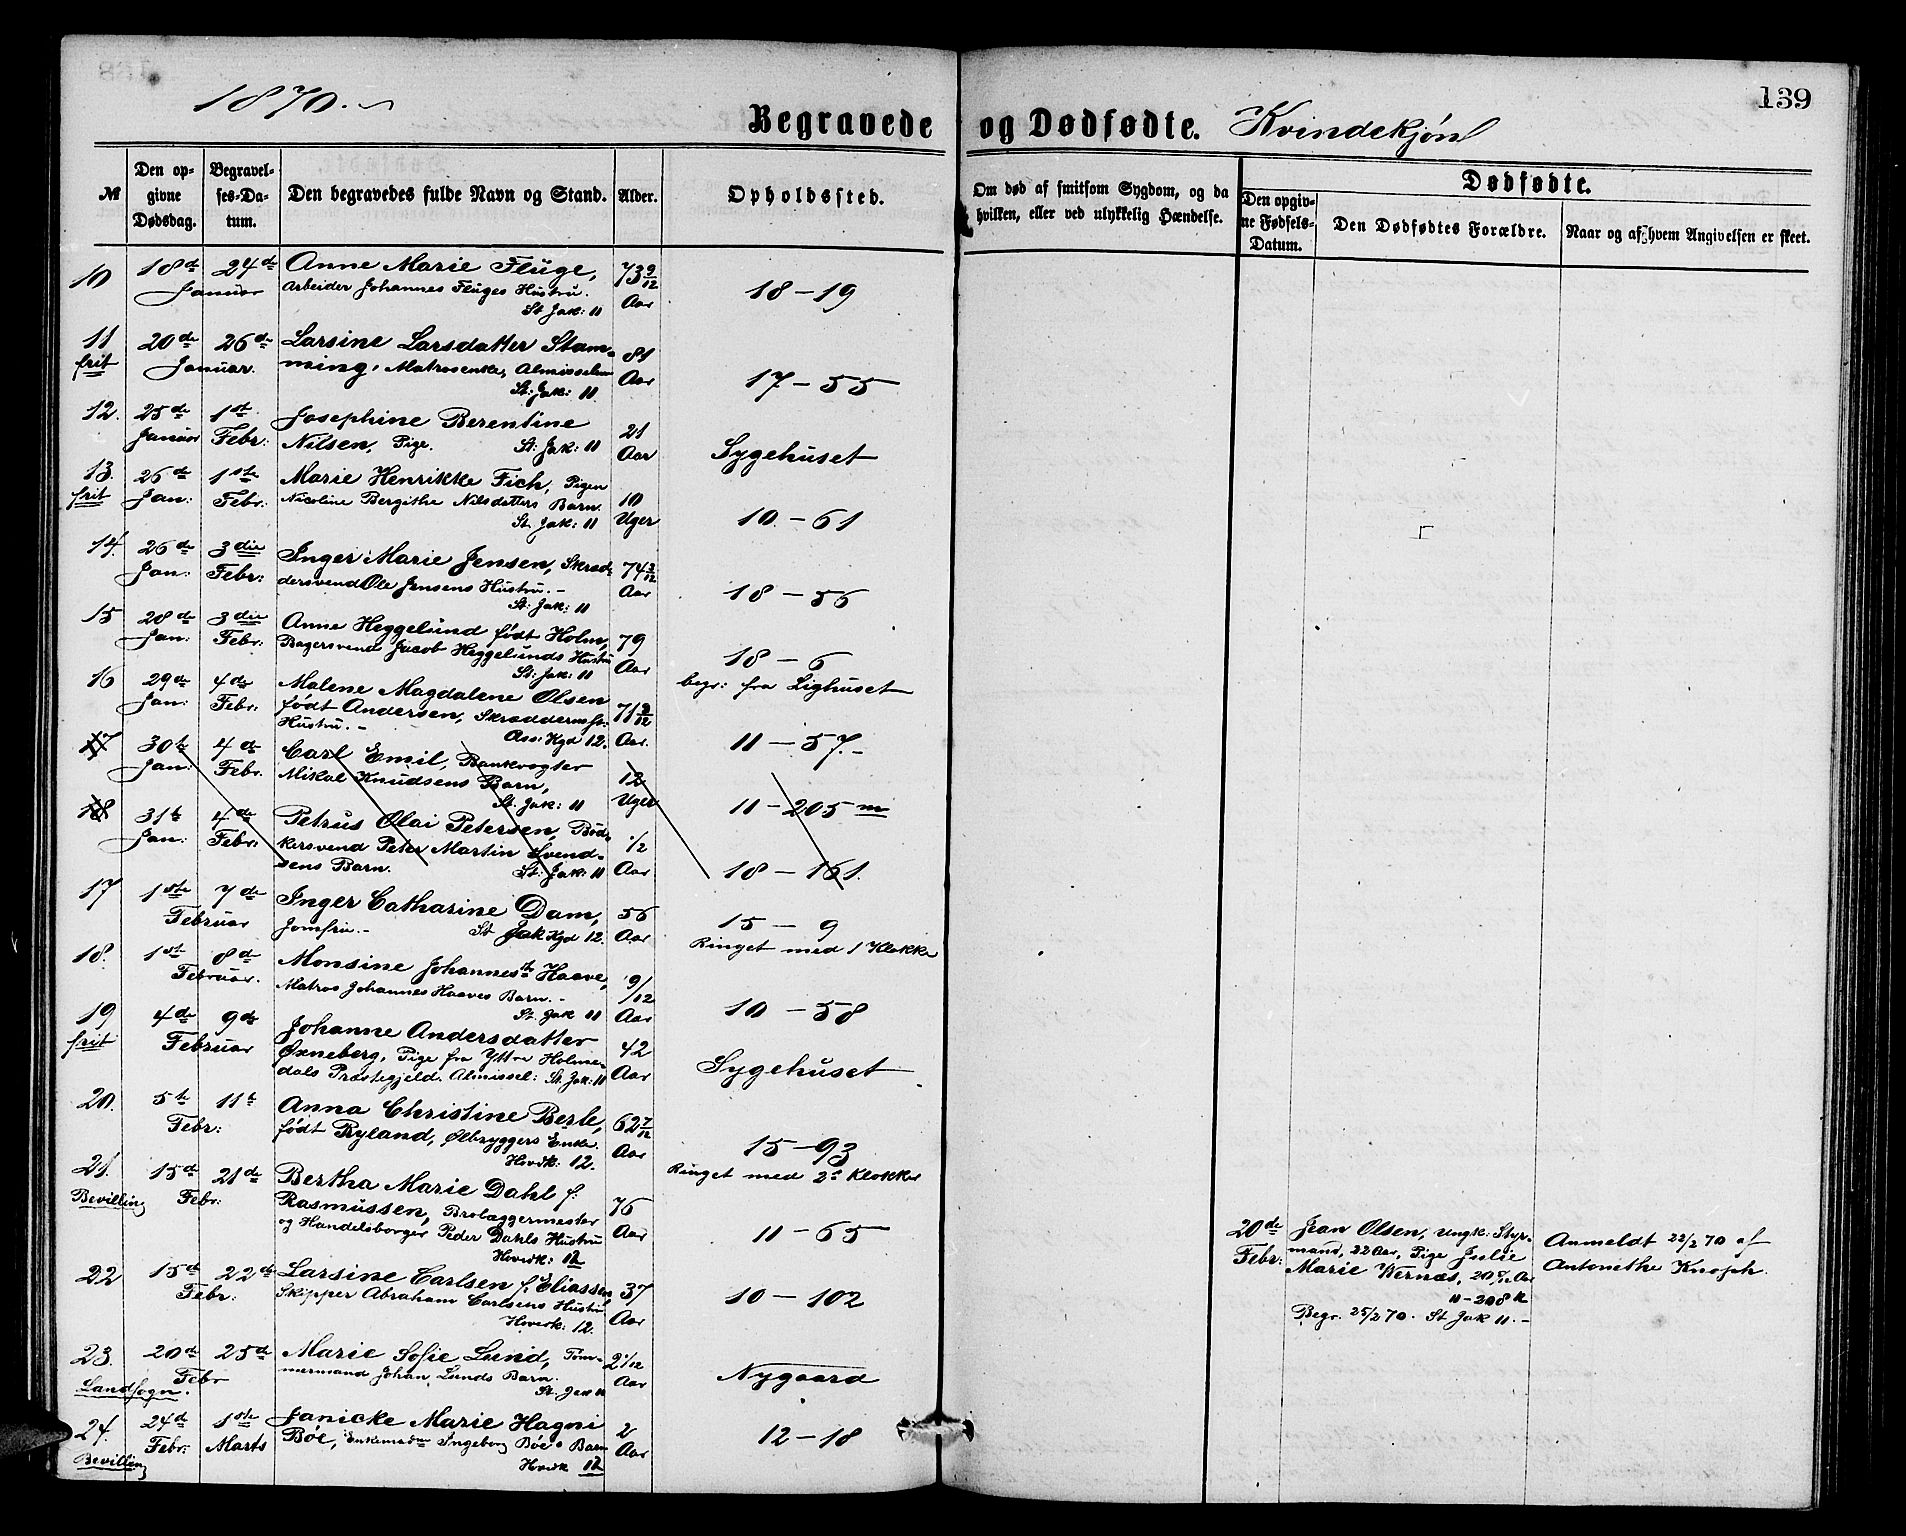 1870.
Begravede og Dødfødte. Kvindekjøn
139
№
Den opgivne Dødsdag.
Begravelses-Datum.
Den begravedes fulde Navn og Stand.
Alder.
Opholdssted.
Om død af smitsom Sygdom, og da hvilken, eller ved ulykkelig Hændelse.
Dødfødte.
Den opgivne Fødsels-Datum.
Den Dødfødtes Forældre.
Naar og af hvem Angivelsen er skeet.
10 18de 24de Anne Marie Fluge, 73 9/12
Januar Arbeider Johannes Fluges Hustru. Aar 18-19
St Jak: 11
11 20de 26de Larsine Larsdatter Stam- 81
frit Januar. ming, Matrosenke, Almisselem Aar 17-55
St: Jak: 11.
12. 25de 1st Josephine Berentine 21
Januar Febr: Nilsen, Pige. St: Jak: 11 Aar Sygehuset
13. 26de 1ste Marie Henrikke Fich, Pigen 10
frit Jan: Febr: Nicoline Bergithe Nilsdatters Barn. Uger 10-61
St. Jak: 11
14. 26de 3die Inger Marie Jensen, Skræd- 74 3/12
Jan: Febr: dersvend Ole Jensens Hustru.- Aar 18-56
St: Jak: 11
15 28de 3die Anne Heggelund født Holm, 79
Jan: Febr: Bagersvend Jacob Heggelunds Hustru Aar 18-6
St: Jak: 11 begr: fra Lighuset
16 29de 4de Malene Magdalene Olsen
Jan: Febr: født Andersen, Skræddermstr: 71 9/12
Hustru.- Ass: Kgd 12. Aar. 11-57.-
17 30te 4de Carl Emil, Bankvogter
Jan: Febr. Mikal Knudsens Barn, 12
St. Jak: 11 Uger 11-205 m
18 31te 4de Petrus Olai Petersen, Bød-
Jan: Febr: kersvend Peter Martin Svend- 1/2
sens Barn. St. Jak: 11 Aar 18-161.
17 1ste 7de Inger Catharine Dam, 56 15-9
Februar Jomfru.- St Jak Kgd 12. Aar Ringet med 1 Klokke
18. 1ste 8de Monsine Johannesdt Haave, 9/12
Februar. Matros Johannes Haaves Barn.- Aar 10-58
St. Jak 11
19 4de 9de Johanne Andersdatter 42
frit Februar Oxneberg, Pige fra Yttre Holme-
dals Præstegjeld. Almissel: St. Jak: 11 Aar Sygehuset
20. 5te 11te Anna Christine Berle, 62 7/12
Febr: født Ryland, Ølbryggers Enke. Aar 15-93
Hovdk: 12. Ringet med 2de Klokker
21. 15de 21de Bertha Marie Dahl f:
Bevilling Febr: Rasmussen, Brolæggermester 76
og Handelsborger Peder Dahls Hustru Aar 11-65
Hovedk: 12
22 15de 22de Larsine Carlsen f. Eliassen 37
Febr: Skipper Abraham Carlsens Hustru Aar 10-102
Hovedk: 12.
23. 20de 25de Marie Sofie Lund, Tøm- 2 1/12
Landsogn. Febr mermand Johan Lunds Barn. Aar Nygaard
St. Jak 11
24. 24de 1ste Janicke Marie Hagni 2
Bevilling Febr: Marts Böe, Enkemadm Ingeborg Böe's Barn Aar 12-18
Hovdk 12
20de Febr:
Jean Olsen, Ungk: Styr-
mand, 22 Aar, Pige Julie
Marie Wernæs, 20 Aar
11-208 k
Begr. 25/2 70. St Jak 11.-
Anmeldt 22/2 70 af
Antonethe Knoph.